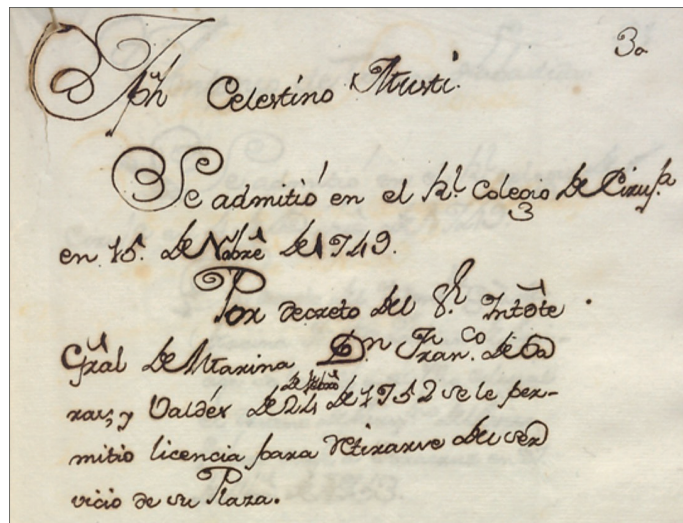 3o
Jph Celestino Mutis.
Se admitió en el Rl. Colegio de Cirugª
3
en 15. de Nobrê de 1749.
Por decreto del Sr. Intdte
Gral de Marina Dn. Franco. de Va
de Febro
ras, y Valdés de 24 de 1752 se le per-
mitio licencia para retirarse del ser
vicio de su Plaza.